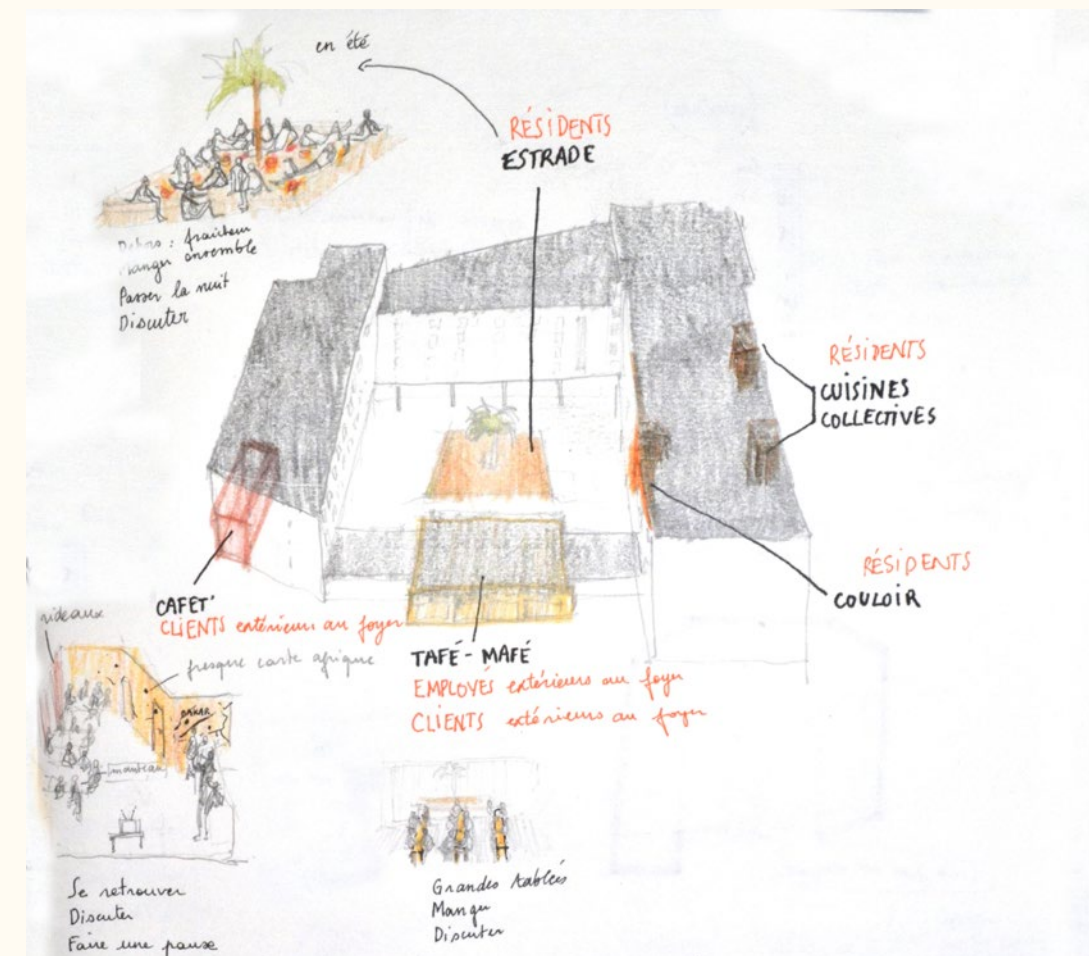 en été
RÉSIDENTS
ESTRADE
Dehors : fraîcheur
Manger ensemble
Passer la nuit
Discuter
RÉSIDENTS
CUISINES
COLLECTIVES
RÉSIDENTS
COULOIR
CAFET'
CLIENTS extérieurs au foyer
rideaux
fresque carte afrique
DAKAR
TAFÉ-MAFÉ
EMPLOYÉS extérieurs au foyer
CLIENTS extérieurs au foyer
Se retrouver
Discuter
Faire une pause
Grandes tablées
Manger
Discuter